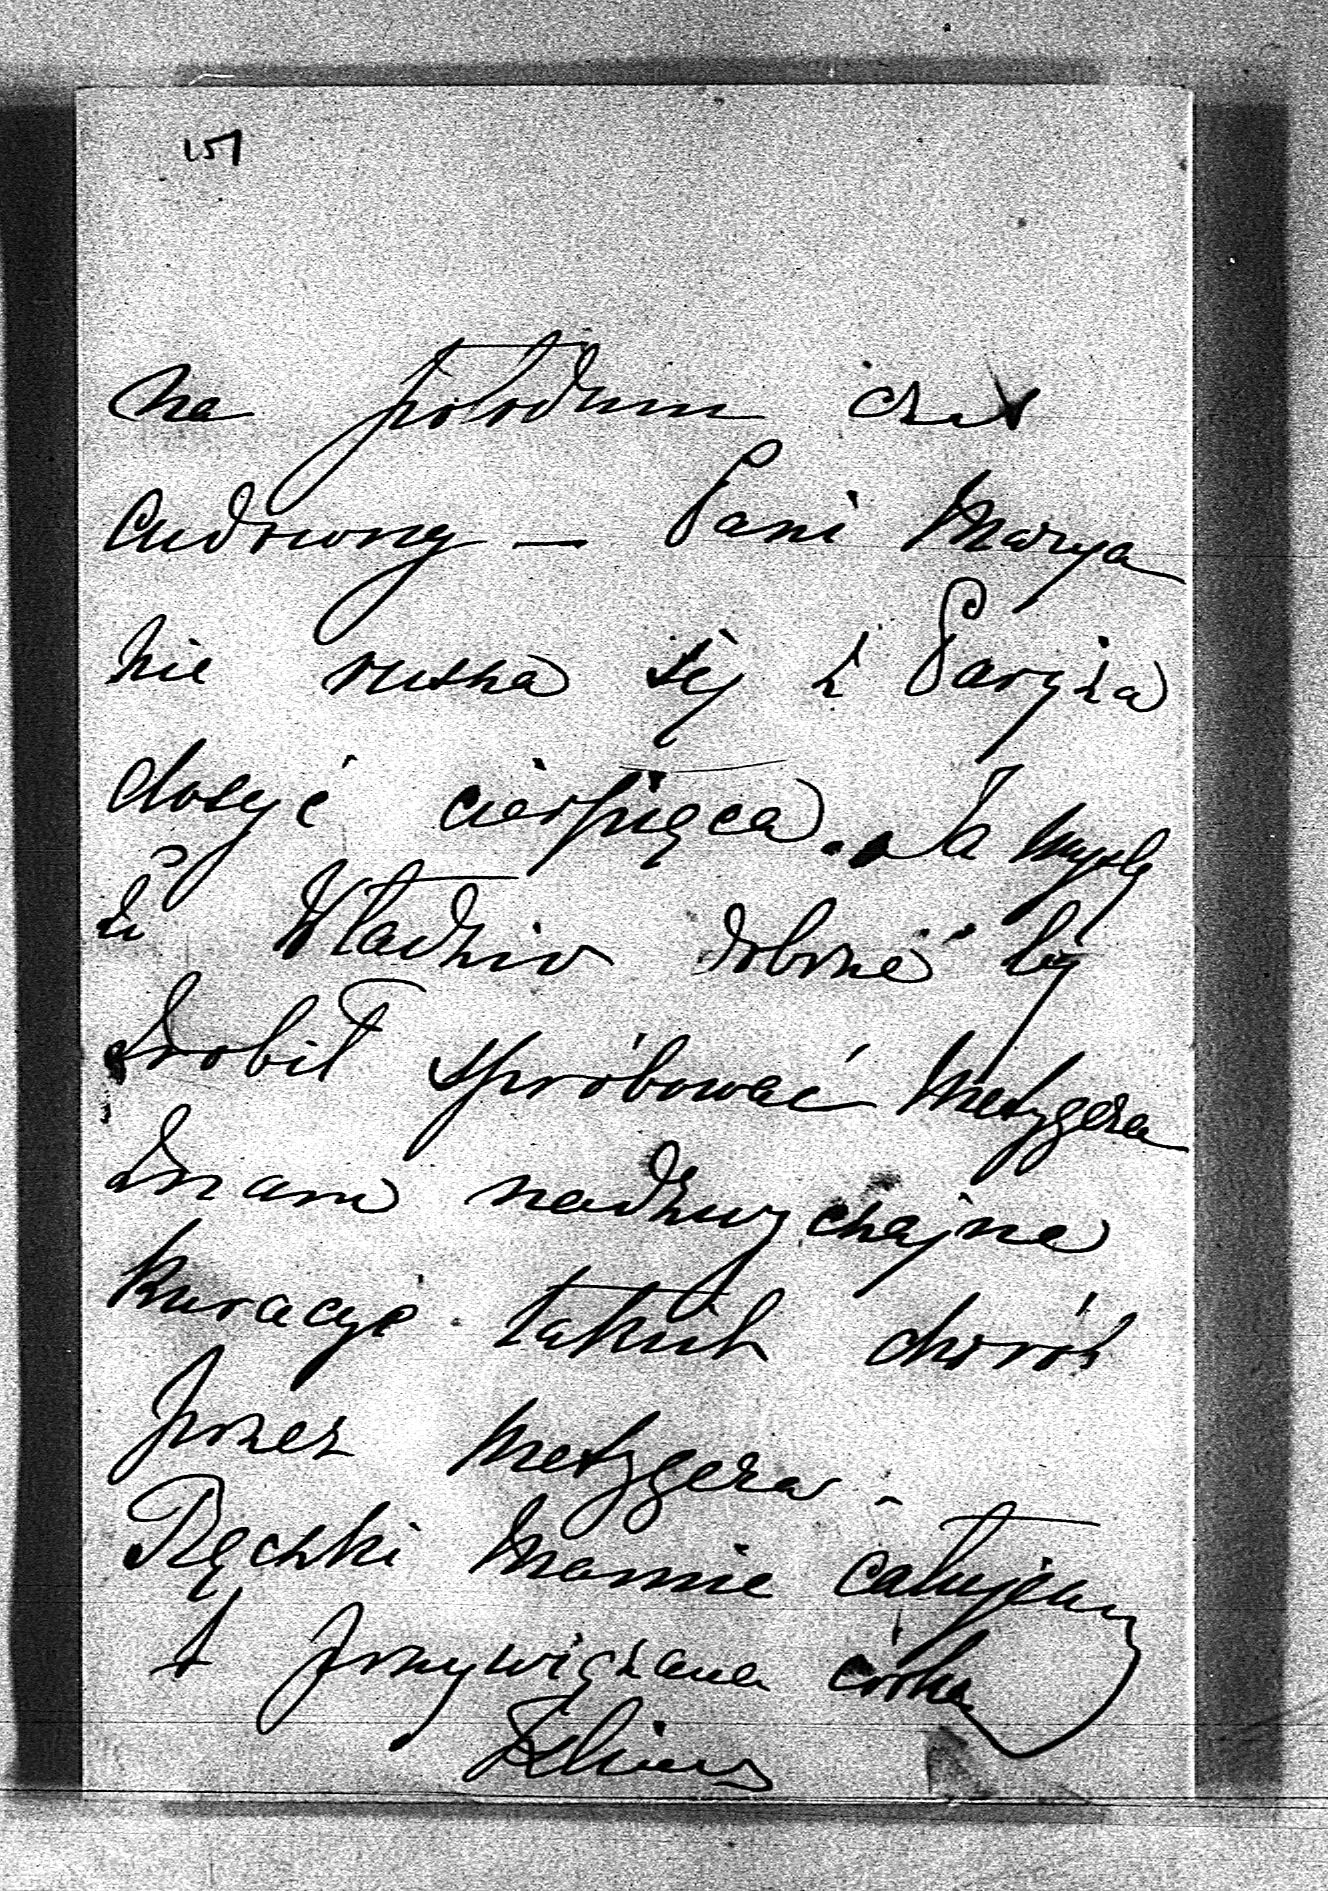 157
na południu czas
cudowny — Pani Marya
nie rusza się z Paryża
dosyć cierpiąca. Ja myślę
że Władzio dobrze by
zrobił spróbować Metzgera
Znam nadzwyczajne
kuracye takich chorób
przez Metzgera —
Rączki Mamie całujemy
przywiązana córka